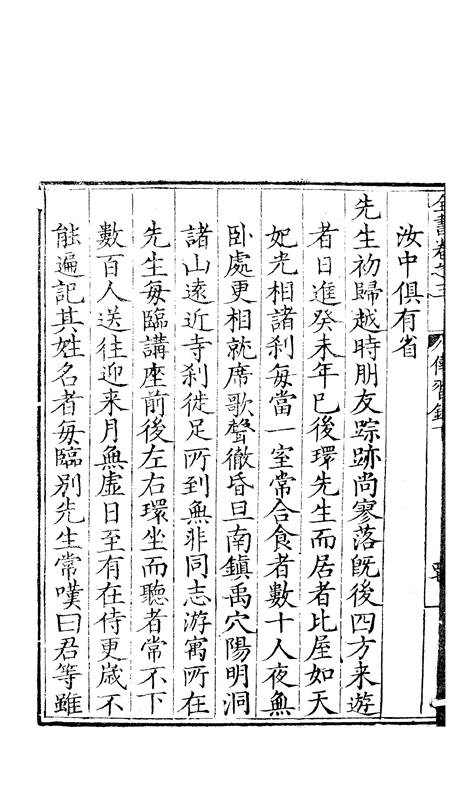 全書卷之三　傳習錄下
汝中俱有省
先生初歸越時朋友踪跡尚寥落既後四方来遊
者日進癸未年已後環先生而居者比屋如天
妃光相諸刹每當一室常合食者數十人夜無
卧處更相就席歌聲徹昏旦南鎮禹穴陽明洞
諸山遠近寺刹徙足所到無非同志游寓所在
先生每臨講座前後左右環坐而聽者常不下
數百人送往迎来月無虛日至有在侍更歲不
能遍記其姓名者每臨别先生常嘆曰君等雖